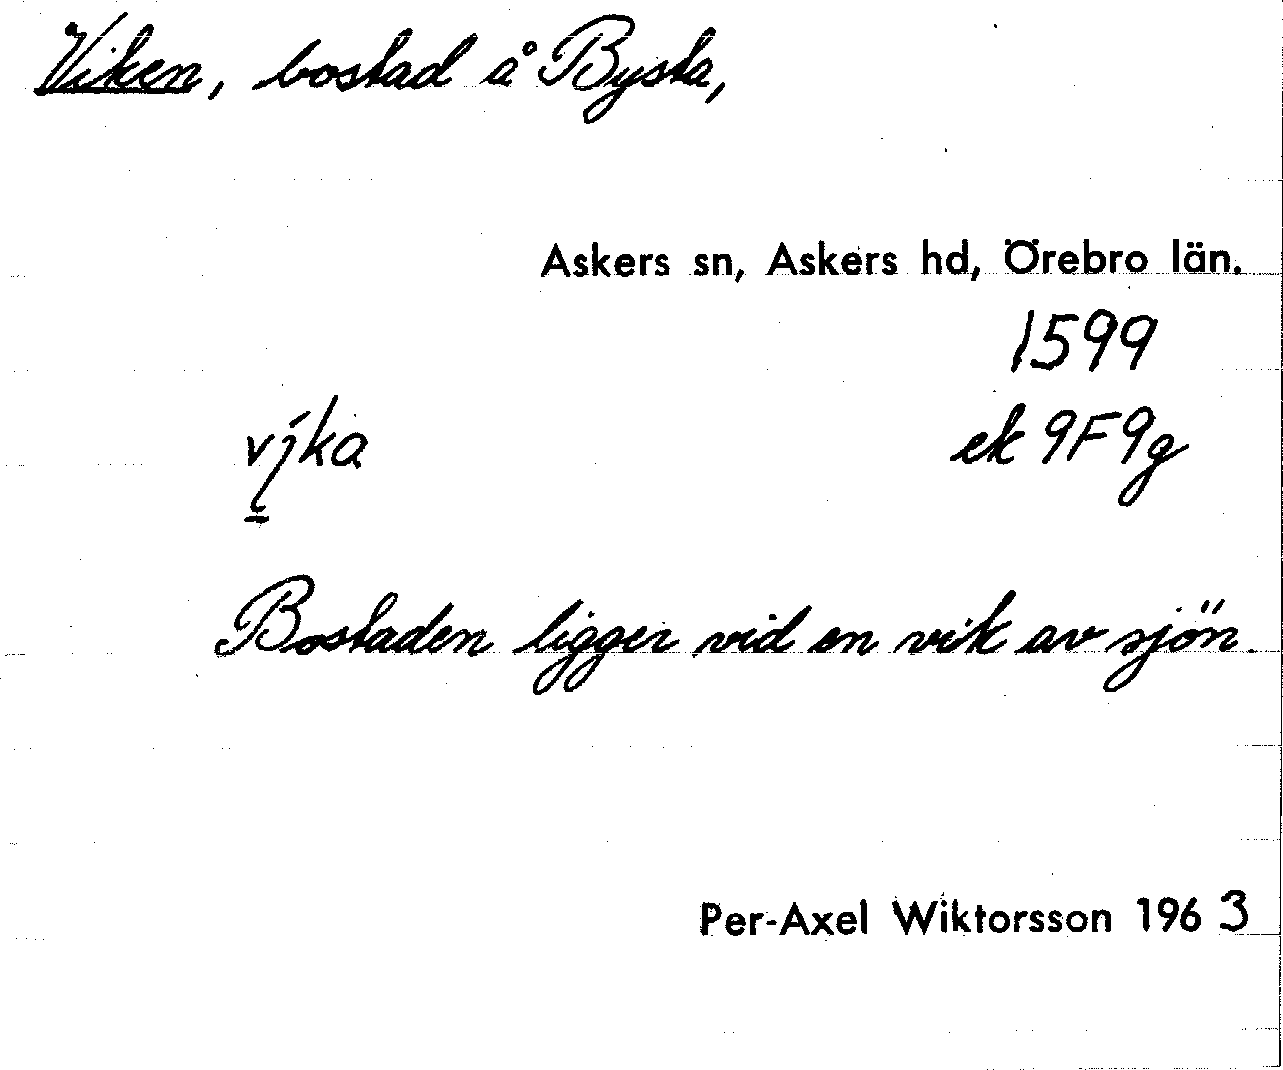 Viken, bostad å Bysta,
Askers sn, Askers hd, Örebro län.
1599
víka ek 9F9g
Bostaden ligger vid en vik av sjön.
Per-Axel Wiktorsson 1963